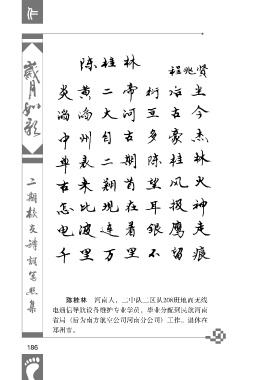 歲月如歌
陈桂林
程兆贤
炎黄二帝
滔滔大河亘古今
中州自古多豪杰
单表二期陈桂林
古来翘首望风火
怎比现在耳报神
电波连着银鹰走
千里万里不留痕
陈桂林 河南人，二中队二区队208班地面无线
电通信导航设备维护专业学员，毕业分配到民航河南
省局（后为南方航空公司河南分公司）工作。退休在
郑州市。
186